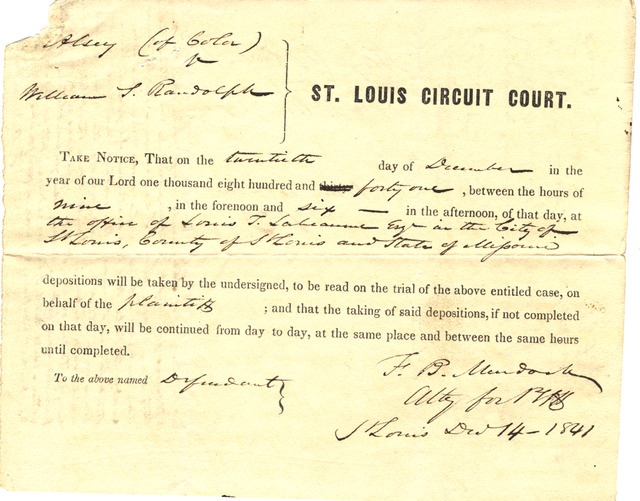 Alsey (of Color)
v
William S. Randolph
ST. LOUIS CIRCUIT COURT.
TAKE NOTICE, That on the twentieth day of December in the
year of our Lord one thousand eight hundred and thirty forty one, between the hours of
nine, in the forenoon and six — in the afternoon, of that day, at
the office of Louis T. Labeaume Esqr in the City of
St Louis, County of St Louis and State of Missouri
depositions will be taken by the undersigned, to be read on the trial of the above entitled case, on
behalf of the plaintiff ; and that the taking of said depositions, if not completed
on that day, will be continued from day to day, at the same place and between the same hours
until completed.
To the above named Defendant
F. B. Murdock
Atty for Plff
St Louis Dec 14 - 1841